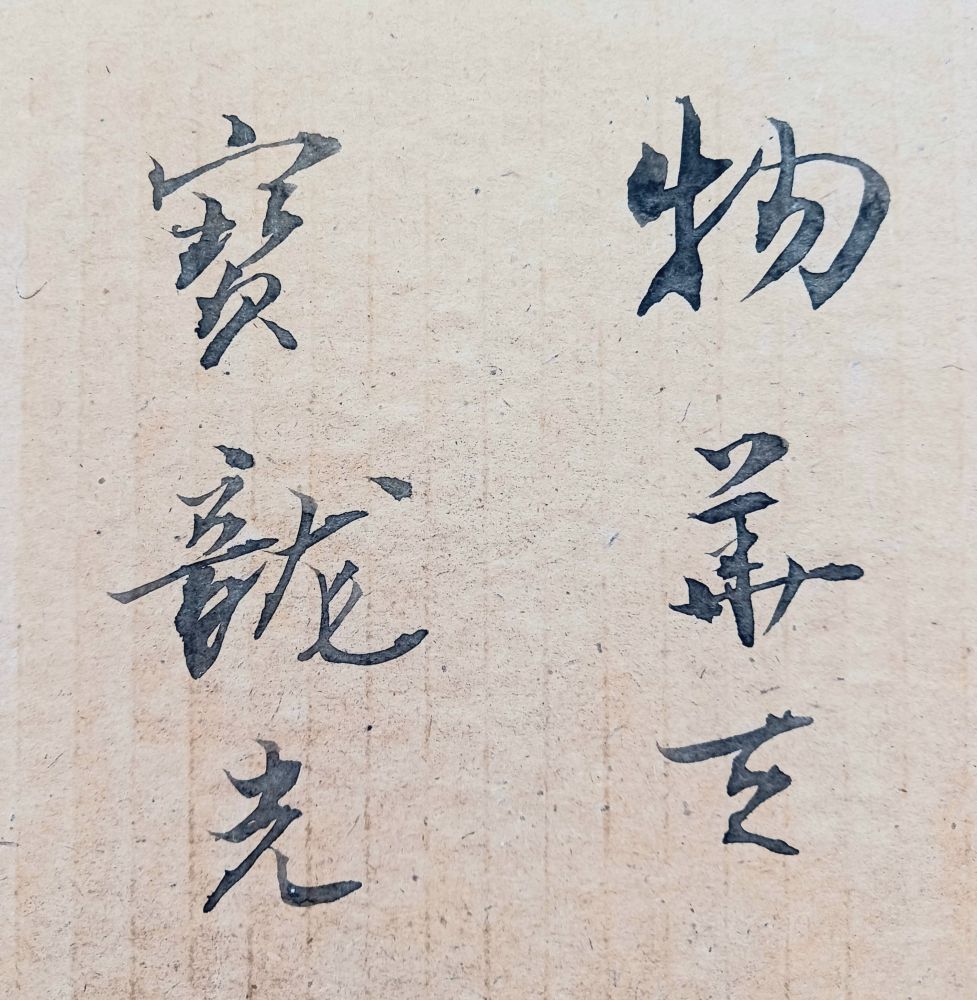 物華天
寶龍光